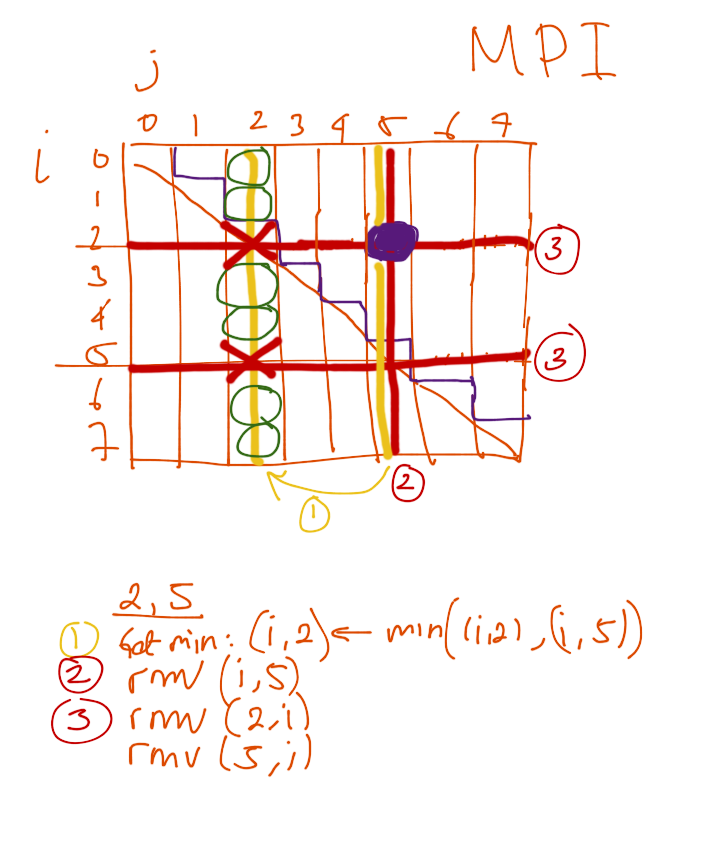 MPI
j
0 1 2 3 4 5 6 7
i
0
1
2
3
3
4
5
3
6
7
2
1
2,5
1 Get min: (i,2) ← min((i,2),(i,5))
2 rmv (i,5)
3 rmv (2,i)
rmv (5,i)